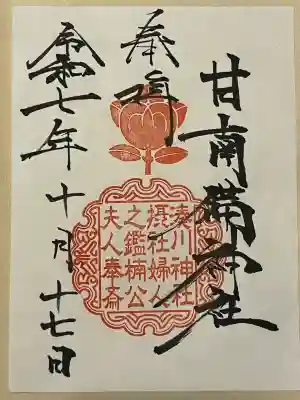 甘南備神社
奉拝
湊川神社
摂社婦人
之鑑楠公
夫人奉斎
令和七年十月十七日